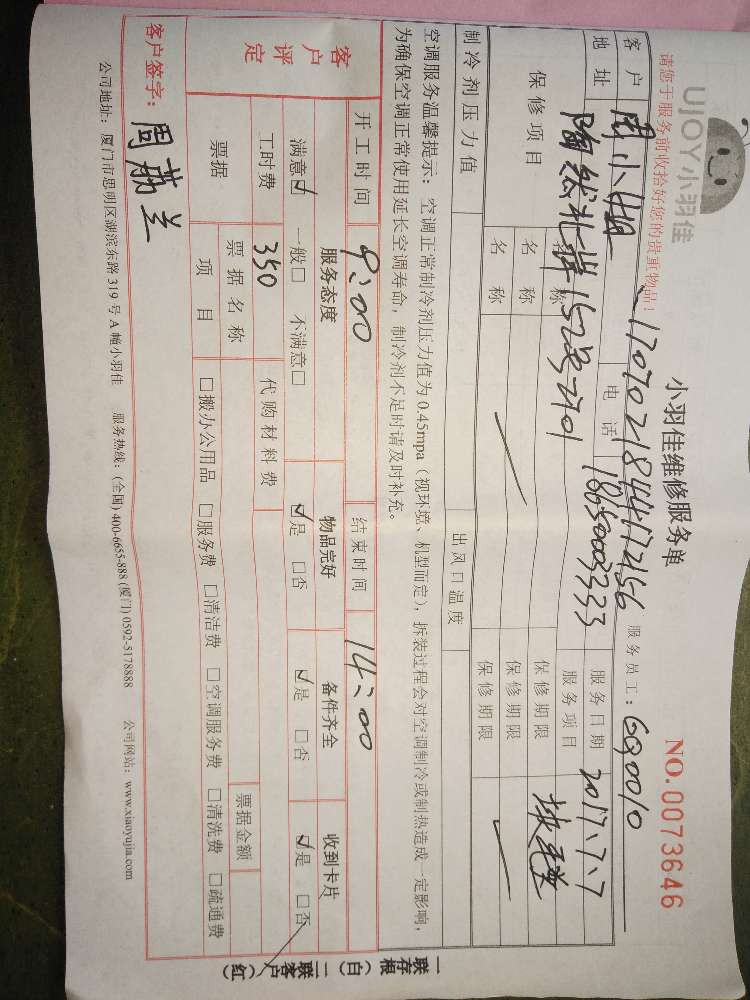 UJOY小羽佳
小羽佳维修服务单
NO.0073646
请您于服务前收拾好您的贵重物品！
17070218444172156
服务员工：GQ0010
客户 周小姐 电话 18650003333 服务日期 2017.7.7
地址 陶然礼洋152号2701 服务项目
保修项目 名称 保修期限
名称 保修期限
名称 保修期限
制冷剂压力值 出风口温度
空调服务温馨提示：空调正常制冷剂压力值为0.45mpa（视环境、机型而定），拆装过程会对空调制冷或制热造成一定影响，
为确保空调正常使用延长空调寿命，制冷剂不足时请及时补充。
开工时间 9:00 结束时间 14:00
客户评定 服务态度 物品完好 备件齐全 收到卡片
满意☑ 一般□ 不满意□ ☑是 □否 ☑是 □否 ☑是 □否
工时费 350 代购材料费
票据 票据名称 票据金额
项目 □搬办公用品 □服务费 □清洁费 □空调服务费 □清洗费 □疏通费
客户签字：周 兰
公司地址：厦门市思明区湖滨东路319号A幢小羽佳 服务热线：(全国)400-6655-888 (厦门)0592-5178888 公司网站：www.xiaoyujia.com
一联存根（白）二联客户（红）